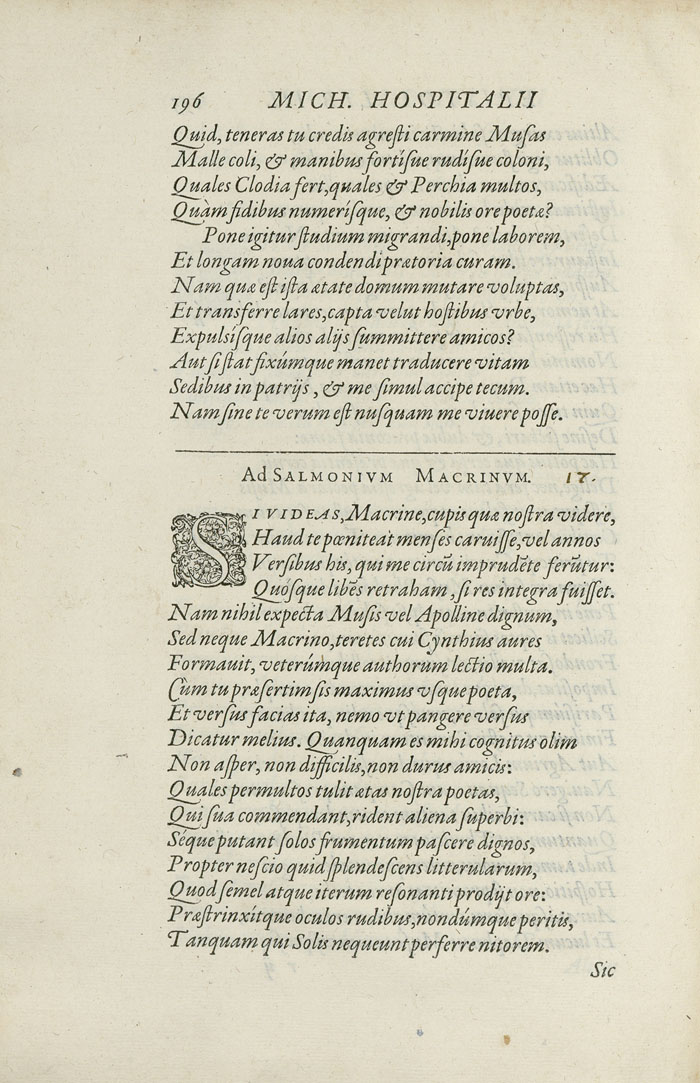 196 MICH. HOSPITALII
Quid, teneras tu credis agreſti carmine Muſas
Malle coli, & manibus fortíſue rudíſue coloni,
Quales Clodia fert, quales & Perchia multos,
Quàm fidibus numeríſque, & nobilis ore poetæ?
Pone igitur ſtudium migrandi, pone laborem,
Et longam noua condendi prætoria curam.
Nam quæ eſt iſta ætate domum mutare voluptas,
Et transferre lares, capta velut hoſtibus vrbe,
Expulsíſque alios alijs ſummittere amicos?
Aut ſi ſtat fixúmque manet traducere vitam
Sedibus in patrijs, & me ſimul accipe tecum.
Nam ſine te verum eſt nuſquam me viuere poſſe.
Ad SALMONIVM MACRINVM. 17.
SI VIDEAS, Macrine, cupis quæ noſtra videre,
Haud te pœniteat menſes caruiſſe, vel annos
Verſibus his, qui me circũ imprudẽte ferũtur:
Quóſque libẽs retraham, ſi res integra fuiſſet.
Nam nihil expecta Muſis vel Apolline dignum,
Sed neque Macrino, teretes cui Cynthius aures
Formauit, veterúmque authorum lectio multa.
Cùm tu præſertim ſis maximus vſque poeta,
Et verſus facias ita, nemo vt pangere verſus
Dicatur melius. Quanquam es mihi cognitus olim
Non aſper, non difficilis, non durus amicis:
Quales permultos tulit ætas noſtra poetas,
Qui ſua commendant, rident aliena ſuperbi:
Séque putant ſolos frumentum paſcere dignos,
Propter neſcio quid ſplendeſcens litterularum,
Quod ſemel atque iterum reſonanti prodijt ore:
Præſtrinxítque oculos rudibus, nondúmque peritis,
Tanquam qui Solis nequeunt perferre nitorem.
Sic